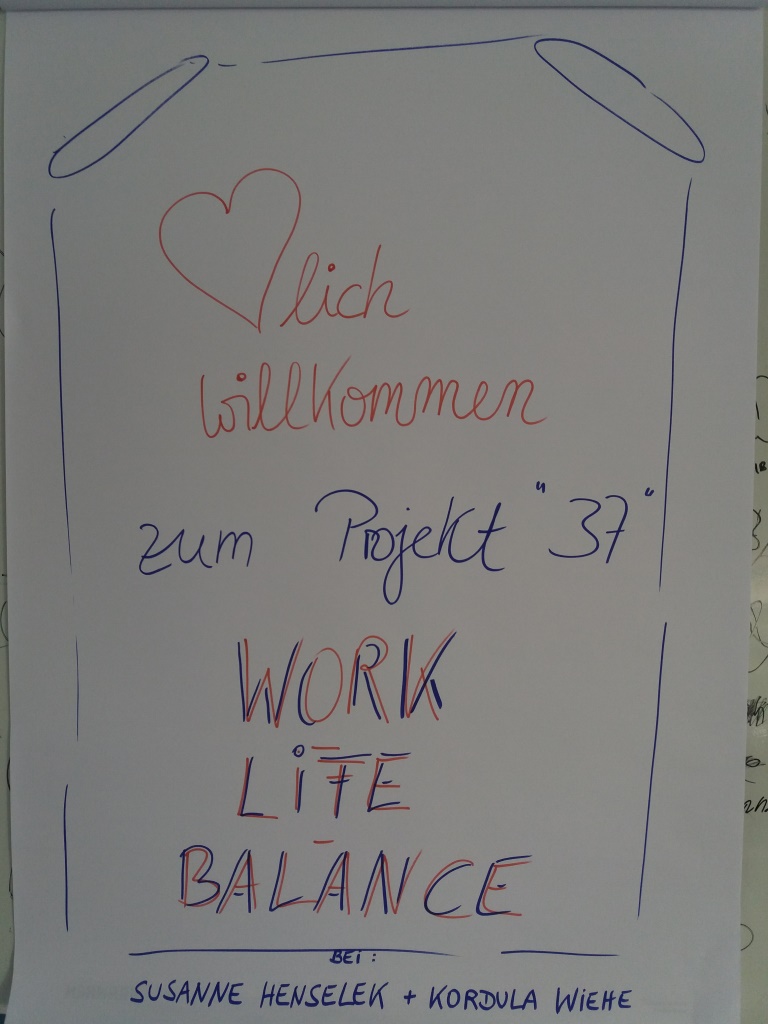 ♥lich
willkommen
zum Projekt "37"
WORK
LiFE
BALANCE
BEi:
SUSANNE HENSELEK + KORDULA WiEHE